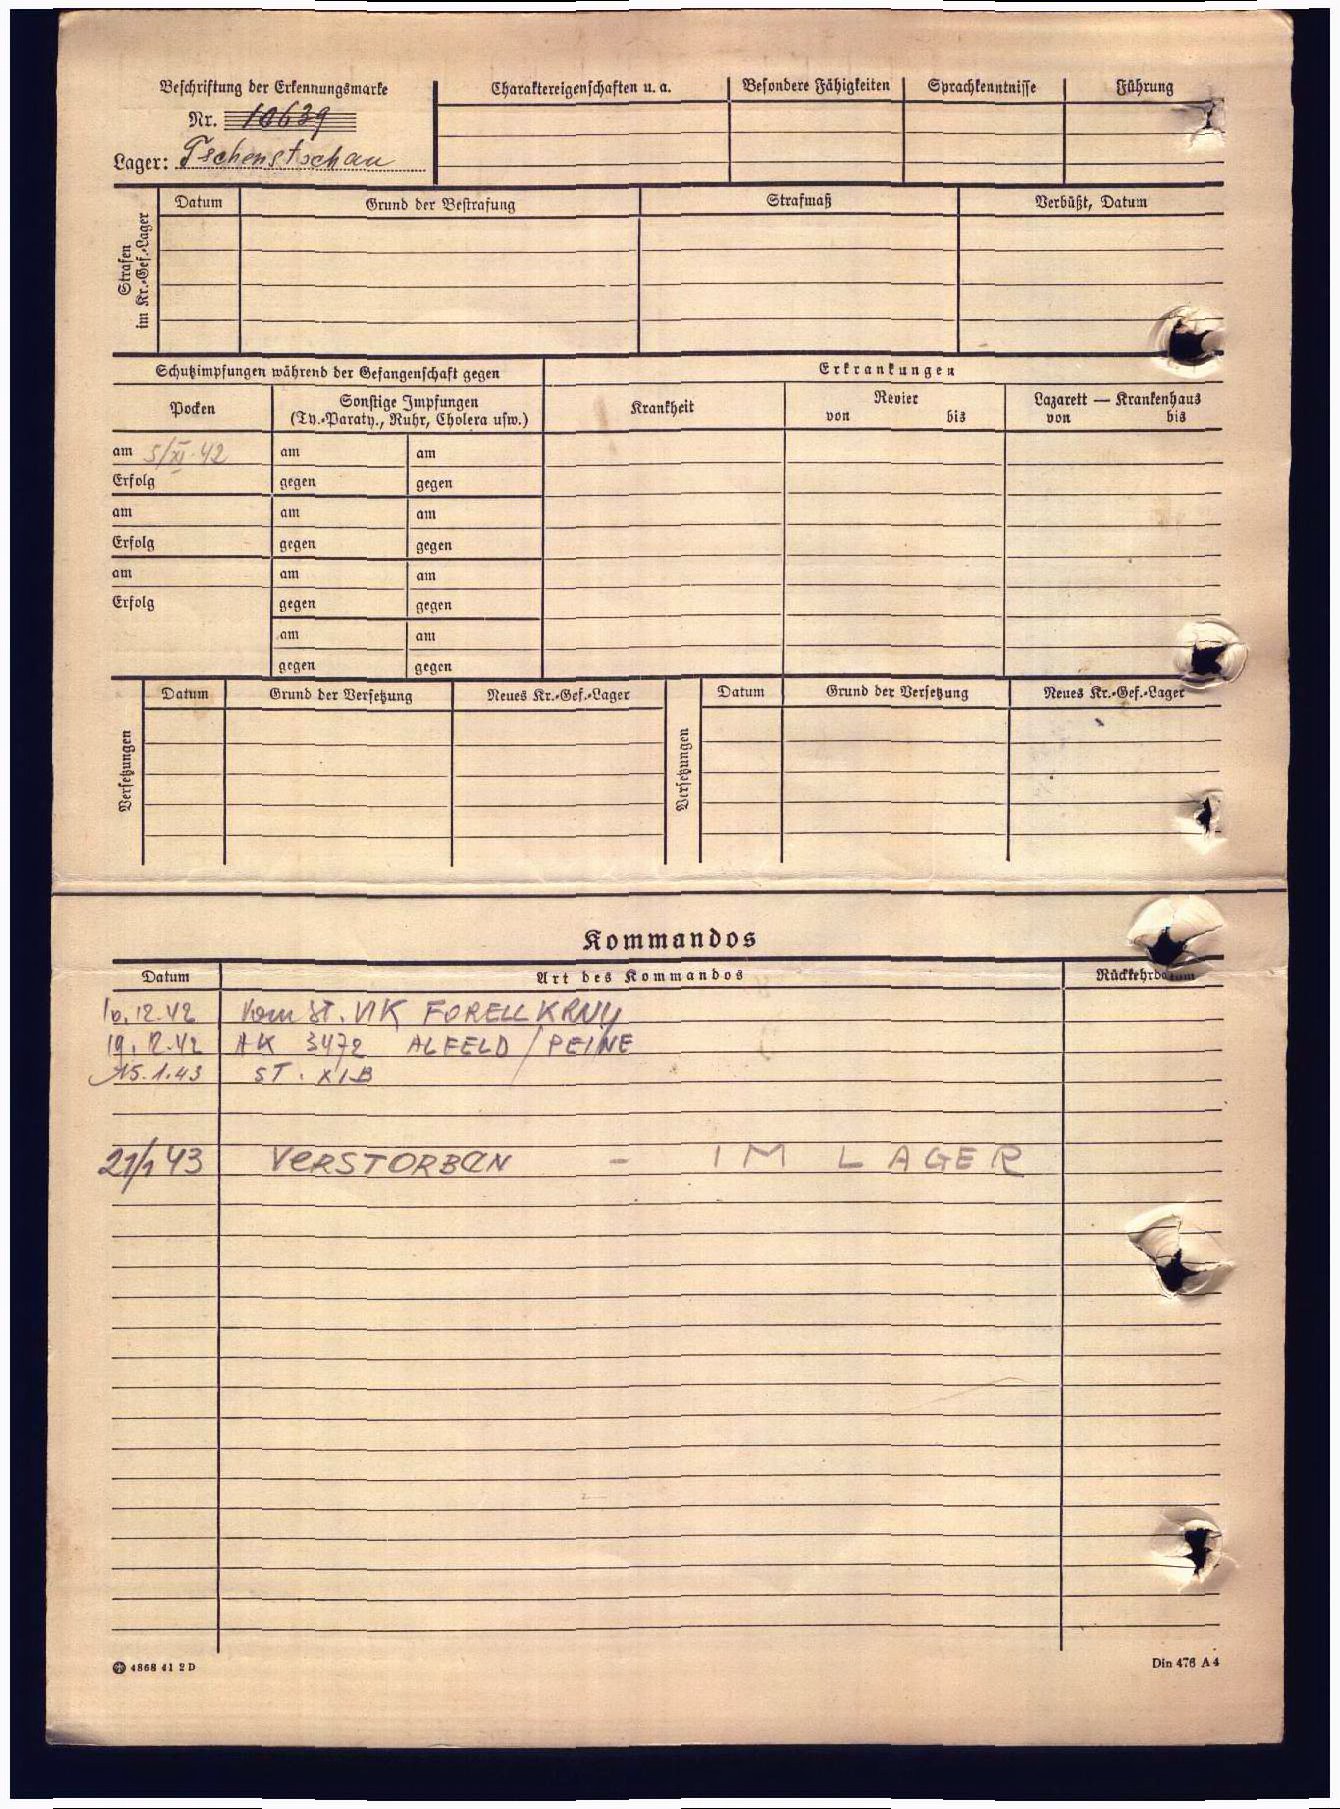 Beschriftung der Erkennungsmarke
Nr. 10639
Lager: Tschenstochau
Charaktereigenschaften u. a.
Besondere Fähigkeiten
Sprachkenntnisse
Führung
Strafen
im Kr.-Gef.-Lager
Datum
Grund der Bestrafung
Strafmaß
Verbüßt, Datum
Schutzimpfungen während der Gefangenschaft gegen
Erkrankungen
Pocken
Sonstige Impfungen
(Ty.-Paraty., Ruhr, Cholera usw.)
Krankheit
Revier
von bis
Lazarett — Krankenhaus
von bis
am 5/XI 42 am am
Erfolg gegen gegen
am am am
Erfolg gegen gegen
am am am
Erfolg gegen gegen
am am
gegen gegen
Versetzungen
Datum Grund der Versetzung Neues Kr.-Gef.-Lager
Versetzungen
Datum Grund der Versetzung Neues Kr.-Gef.-Lager
Kommandos
Datum Art des Kommandos Rückkehrdatum
10.12.42 Vom St. VIK
19.12.42 AK 3472 ALFELD / PEINE
15.1.43 ST. XI B
21/1 43 VERSTORBEN - IM LAGER
4868 41 2 D
Din 476 A 4